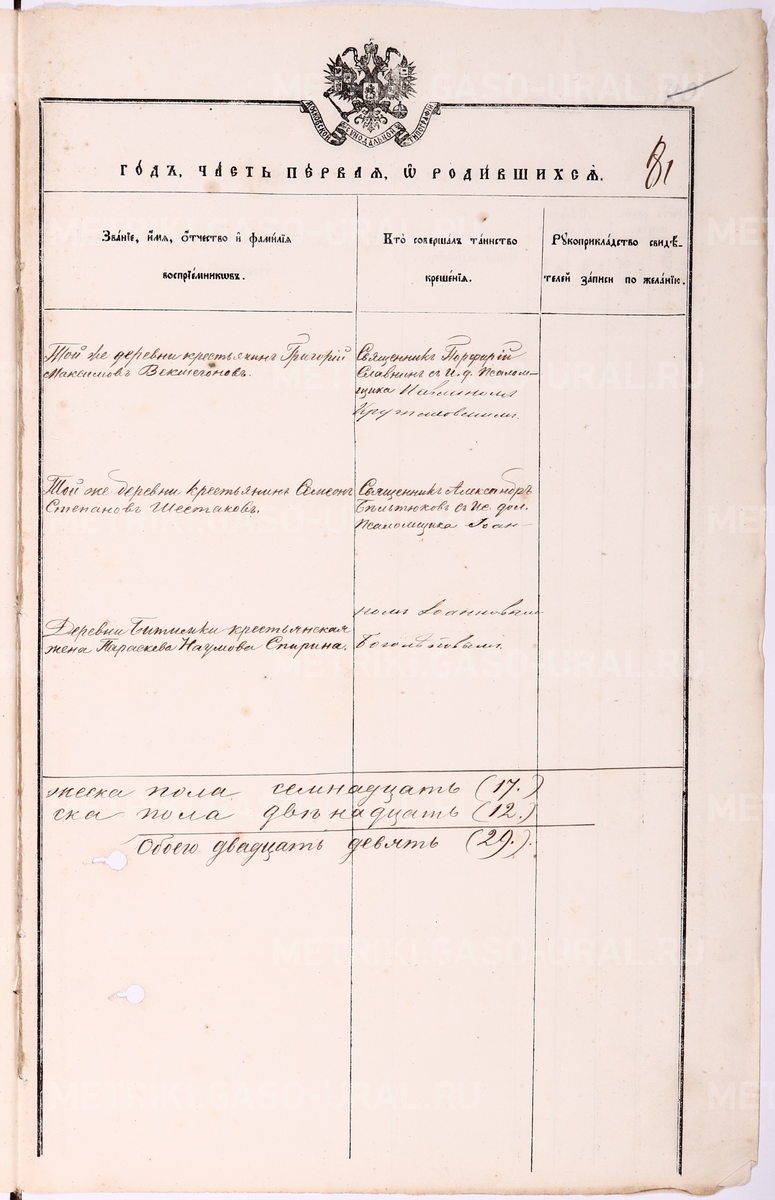 МОСКОВСКОЙ СѴНОДАЛЬНОЙ ТИПОГРАФІИ
ГО́ДЪ, ЧА́СТЬ ПЕ́РВАЯ, Ѿ РОДИ́ВШИХСЯ.
81
Зва́нїе, и́мя, о́тчество и҆ фами́лїя
воспрїе́мникѡвъ.
Кто̀ соверша́лъ та́инство
креще́нїя.
Рꙋкоприкла́дство свидѣ́-
телей за́писи по жела́нїю.
Той же деревни крестьянинъ Григорій
Максимовъ Векшегоновъ.
Священникъ Порфирій
Славнинъ съ И. д. Псалом-
щика
Той же деревни крестьянинъ Семеонъ
Степановъ Шестаковъ.
Священникъ Александръ
Бѣльтюковъ съ Ис. дол.
Псаломщика Іоан-
номъ Іоанновымъ
Боголѣповымъ.
Деревни Битимки крестьянская
жена Параскева Наумова Спирина.
жеска пола семнадцать (17.)
ска пола двѣнадцать (12.)
Обоего двадцать девять (29.).
METRIKI.GASO-URAL.RU